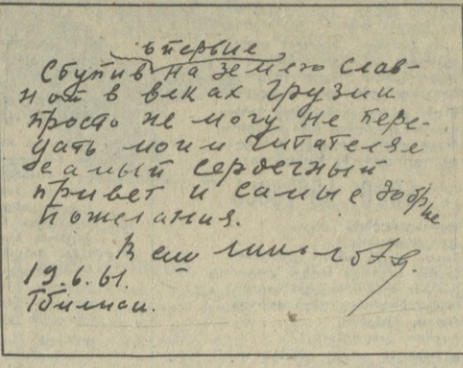 впервые
Вступив на землю слав-
ной в веках Грузии
просто не могу не пере-
дать моим читателям
самый сердечный
привет и самые добрые
пожелания.
19.6.61.
Тбилиси.